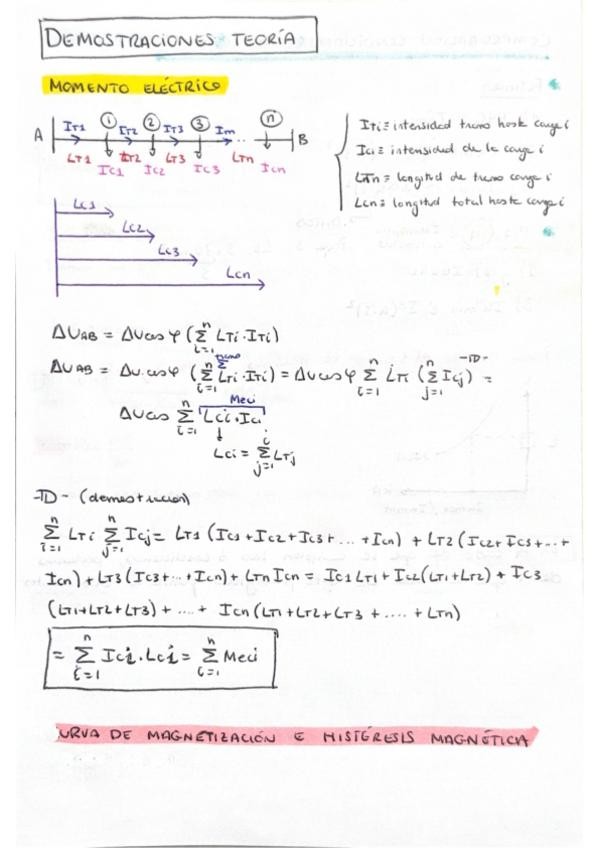 DEMOSTRACIONES TEORÍA
MOMENTO ELÉCTRICO
A IT1 ① IT2 ② IT3 ③ ITn ... ⓝ B
LT1 IC1 LT2 IC2 LT3 IC3 LTn ICn
ITi ≡ intensidad tramo hasta carga i
ICi ≡ intensidad de la carga i
LTn ≡ longitud de tramo carga i
LCn ≡ longitud total hasta carga i
LC1
LC2
LC3
LCn
ΔUAB = ΔUcosφ (Σ i=1 n LTi · ITi)
ΔUAB = ΔU·cosφ (Σ i=1 n LTi · ITi) = ΔUcosφ Σ i=1 n LTi (Σ j=1 n ICj) -TD- =
ΔUcos Σ i=1 n LCi · ICi Meci
LCi = Σ j=1 i LTj
-TD- (demostración)
Σ i=1 n LTi Σ j=i n ICj = LT1 (IC1 + IC2 + IC3 + ... + ICn) + LT2 (IC2 + IC3 + ... +
ICn) + LT3 (IC3 + ... + ICn) + LTn ICn = IC1 LT1 + IC2 (LT1 + LT2) + IC3
(LT1 + LT2 + LT3) + .... + ICn (LT1 + LT2 + LT3 + .... + LTn)
= Σ i=1 n ICi · LCi = Σ i=1 n Meci
URVA DE MAGNETIZACIÓN E HISTÉRESIS MAGNÉTICA